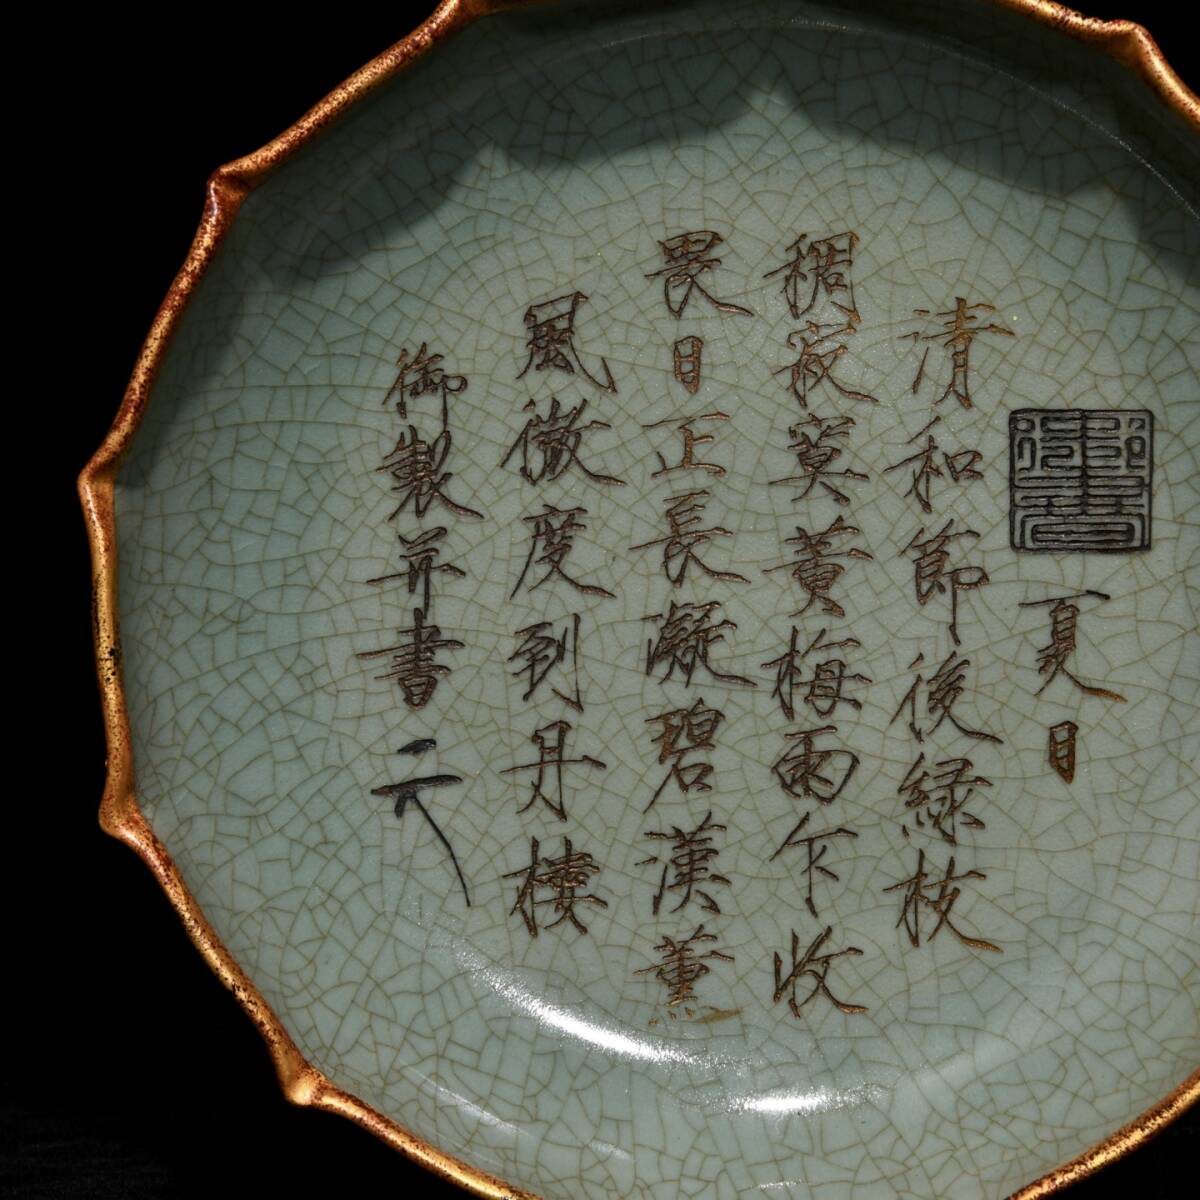 夏日
清和節後緑枝
稠寂寞黄梅雨乍收
畏日正長凝碧漢薰
風微度到丹樓
御製并書